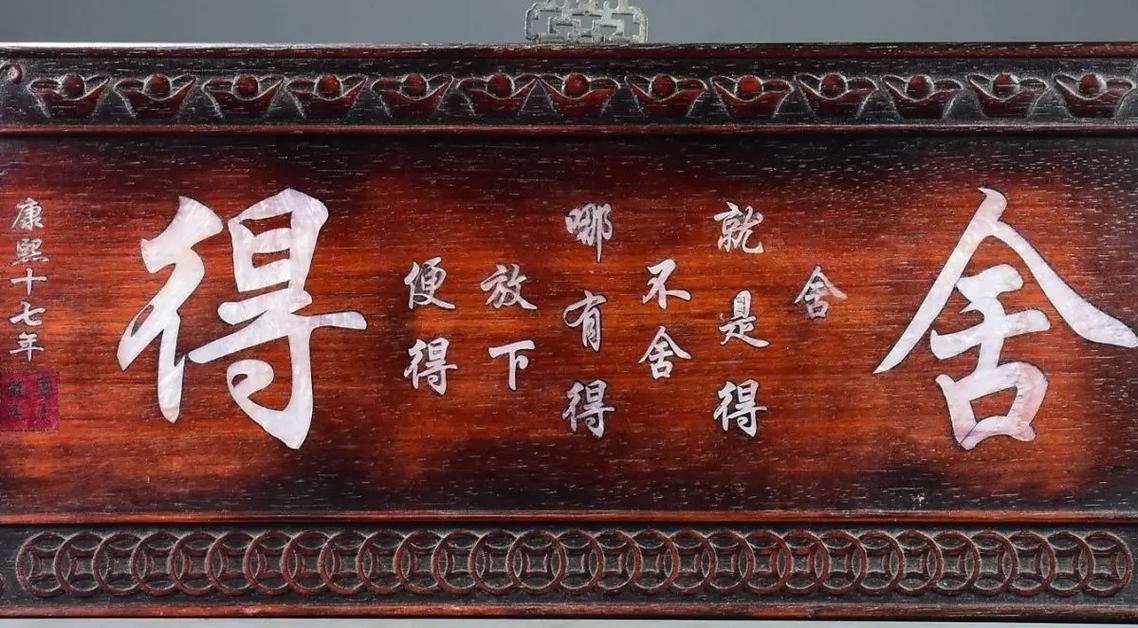 舍
舍
就是得
不舍
哪有得
放下
便得
得
康熙十七年